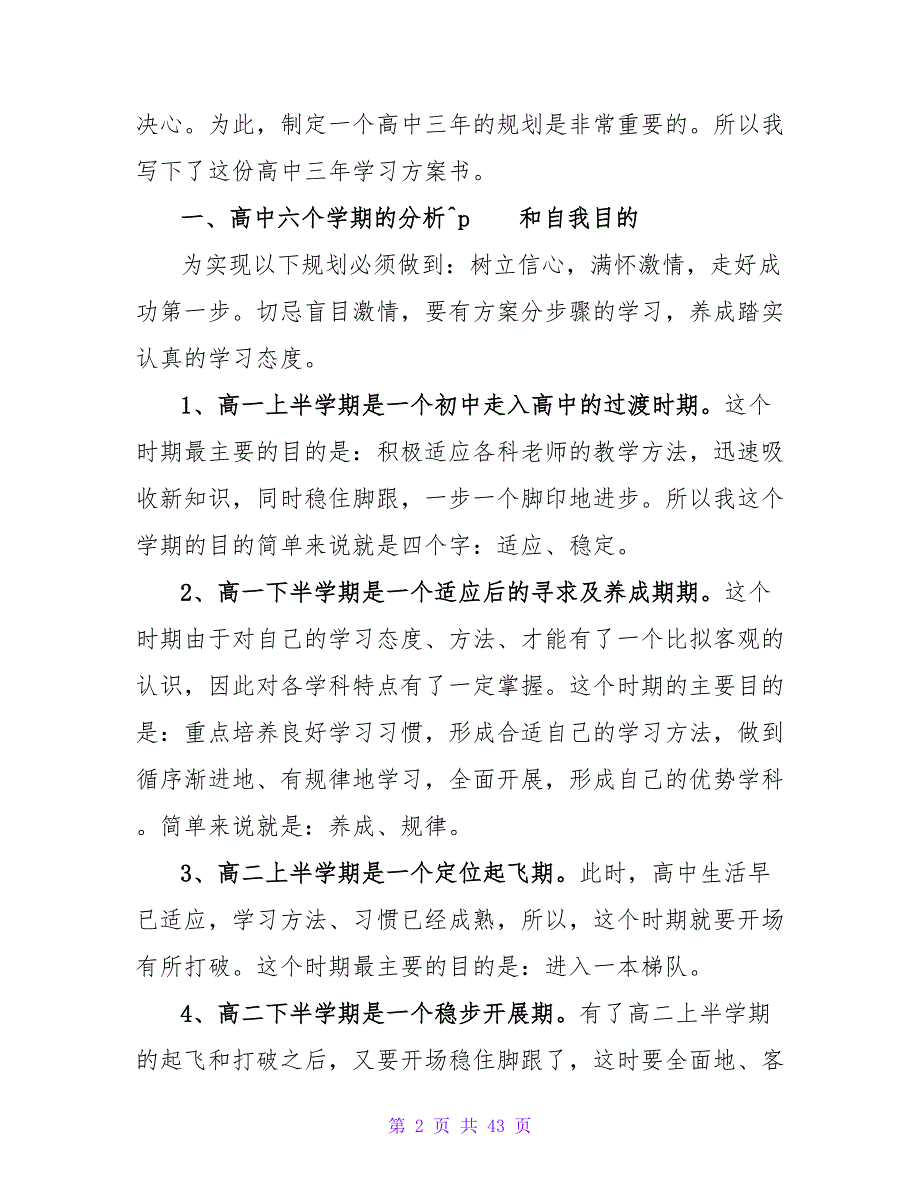 决心。为此，制定一个高中三年的规划是非常重要的。所以我
写下了这份高中三年学习方案书。
一、高中六个学期的分析^p 和自我目的
为实现以下规划必须做到：树立信心，满怀激情，走好成
功第一步。切忌盲目激情，要有方案分步骤的学习，养成踏实
认真的学习态度。
1、高一上半学期是一个初中走入高中的过渡时期。这个
时期最主要的目的是：积极适应各科老师的教学方法，迅速吸
收新知识，同时稳住脚跟，一步一个脚印地进步。所以我这个
学期的目的简单来说就是四个字：适应、稳定。
2、高一下半学期是一个适应后的寻求及养成期期。这个
时期由于对自己的学习态度、方法、才能有了一个比拟客观的
认识，因此对各学科特点有了一定掌握。这个时期的主要目的
是：重点培养良好学习习惯，形成合适自己的学习方法，做到
循序渐进地、有规律地学习，全面开展，形成自己的优势学科
。简单来说就是：养成、规律。
3、高二上半学期是一个定位起飞期。此时，高中生活早
已适应，学习方法、习惯已经成熟，所以，这个时期就要开场
有所打破。这个时期最主要的目的是：进入一本梯队。
4、高二下半学期是一个稳步开展期。有了高二上半学期
的起飞和打破之后，又要开场稳住脚跟了，这时要全面地、客
第 2 页 共 43 页